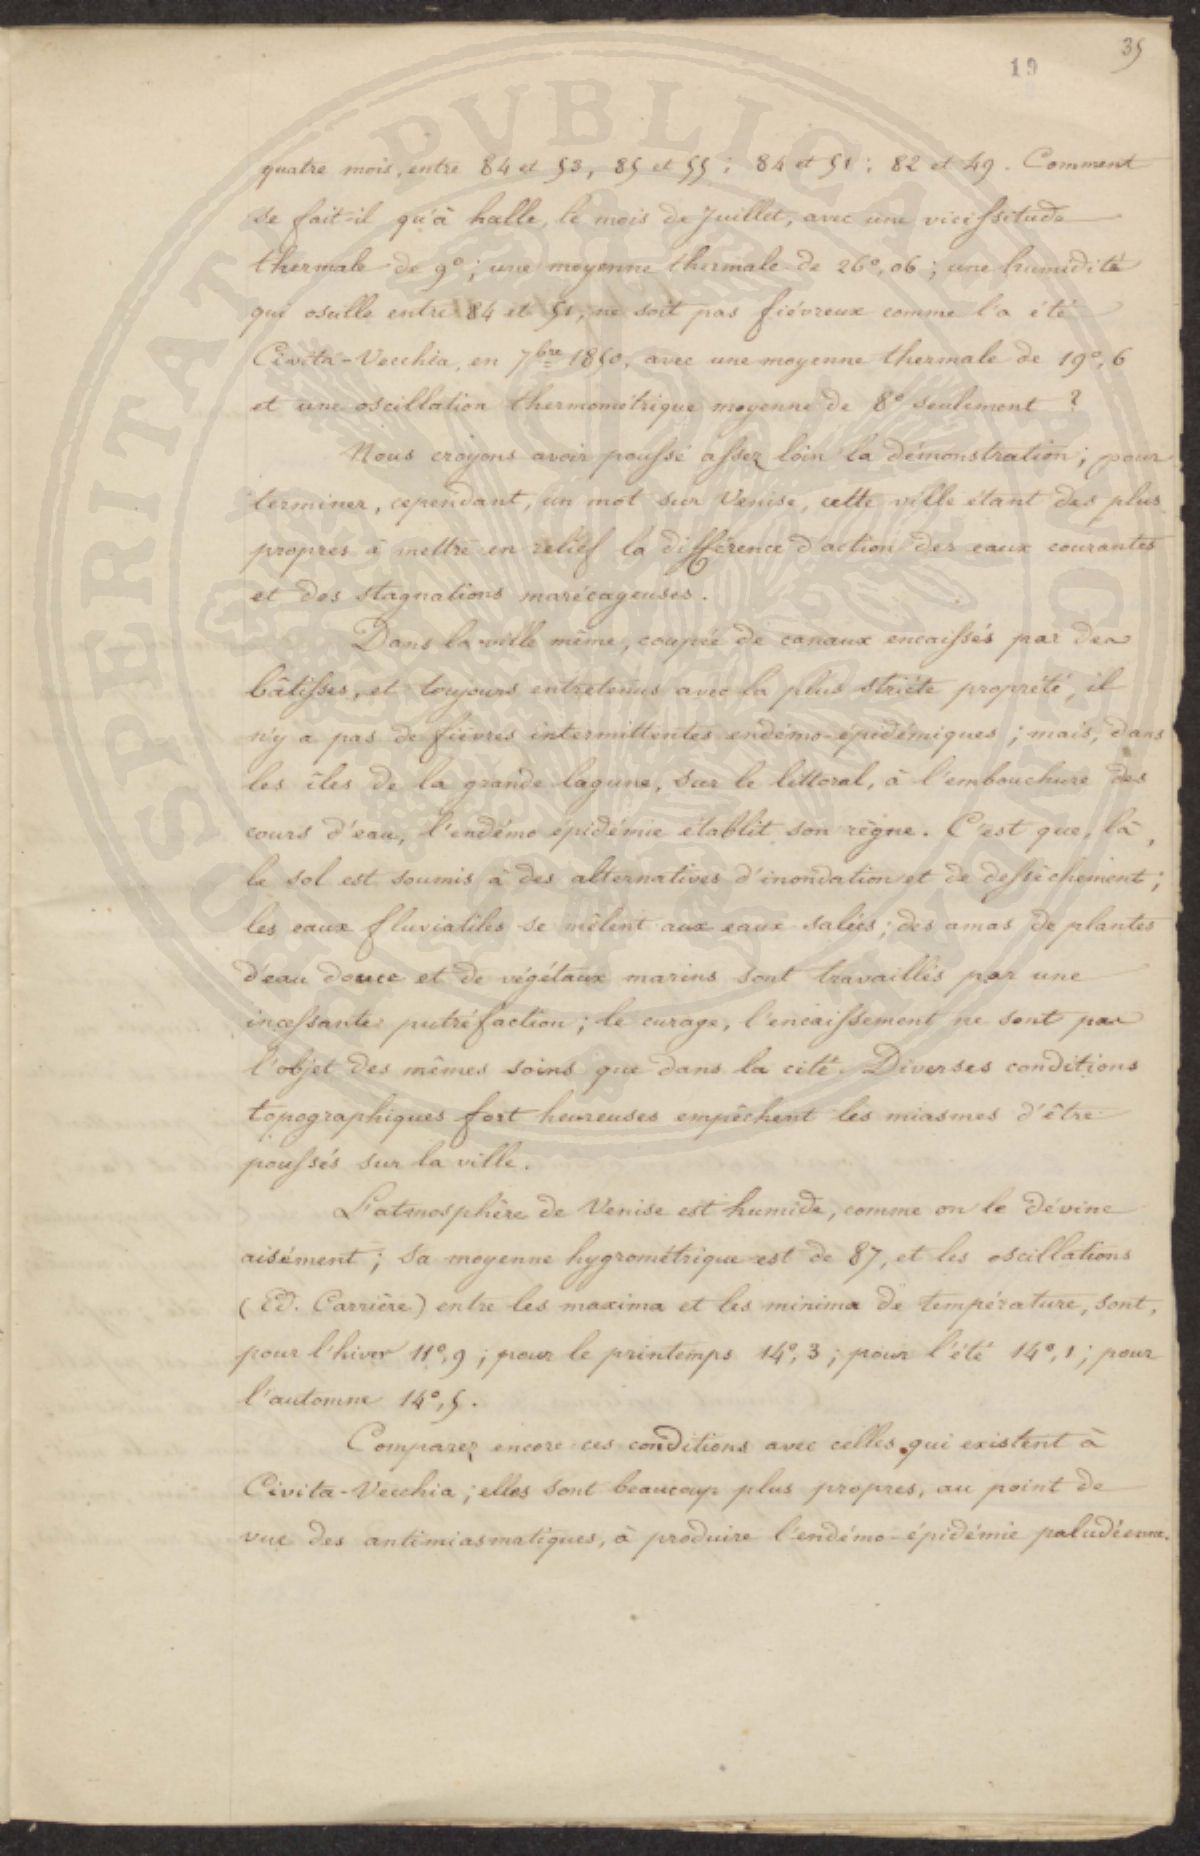 35
19
quatre mois, entre 84 et 53, 85 et 55 ; 84 et 51 ; 82 et 49. Comment
se fait-il qu'à halle, le mois de Juillet, avec une vicissitude
thermale de 9° ; une moyenne thermale de 26°,06 ; une humidité
qui oscille entre 84 et 51, ne soit pas fiévreux comme l'a été
Civita-Vecchia, en 7bre 1850, avec une moyenne thermale de 19°,6
et une oscillation thermométrique moyenne de 8° seulement ?
Nous croyons avoir poussé assez loin la démonstration ; pour
terminer, cependant, un mot sur Venise, cette ville étant des plus
propres à mettre en relief la différence d'action des eaux courantes
et des stagnations marécageuses.
Dans la ville même, coupée de canaux encaissés par des
bâtisses, et toujours entretenus avec la plus stricte propreté, il
n'y a pas de fièvres intermittentes endémo-épidémiques ; mais, dans
les îles de la grande lagune, sur le littoral, à l'embouchure des
cours d'eau, l'endémo épidémie établit son règne. C'est que, là,
le sol est soumis à des alternatives d'inondation et de dessèchement ;
les eaux fluviatiles se mêlent aux eaux salées ; des amas de plantes
d'eau douce et de végétaux marins sont travaillés par une
incessante putréfaction ; le curage, l'encaissement ne sont pas
l'objet des mêmes soins que dans la cité. Diverses conditions
topographiques fort heureuses empêchent les miasmes d'être
poussés sur la ville.
L'atmosphère de Venise est humide, comme on le dévine
aisément ; sa moyenne hygrométrique est de 87, et les oscillations
(Ed. Carrière) entre les maxima et les minima de température, sont,
pour l'hiver 11°,9 ; pour le printemps 14°,3 ; pour l'été 14°,1 ; pour
l'automne 14°,5.
Comparez encore ces conditions avec celles qui existent à
Civita-Vecchia ; elles sont beaucoup plus propres, au point de
vue des antimiasmatiques, à produire l'endémo-épidémie paludéenne.